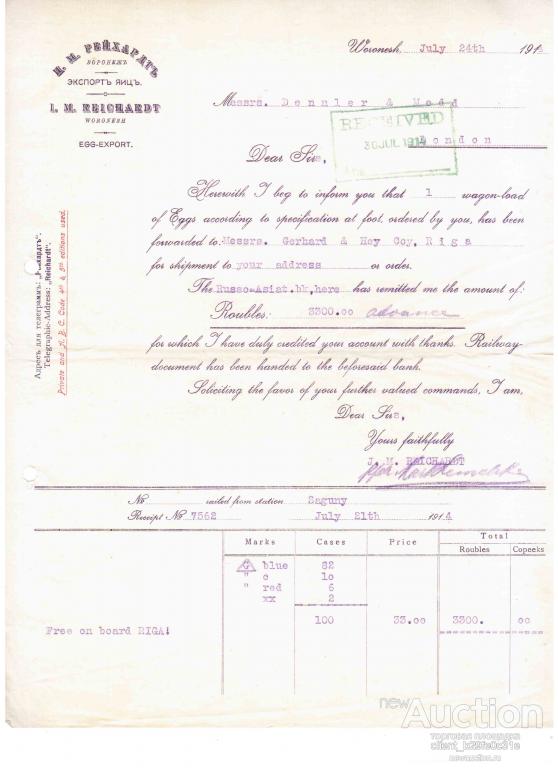 И. М. РЕЙХАРДТЪ
ВОРОНЕЖЪ
ЭКСПОРТЪ ЯИЦЪ.
I. M. REICHARDT
WORONESH
EGG-EXPORT.
Адресъ для телеграммъ: „Рейхардтъ".
Telegraphic-Address: „Reichardt".
Private and A. B. C. Code 4th & 5th editions used.
Woronesh, July 24th 191
Messrs. Dennler & Modd
London
RECEIVED
30 JUL 1914
Dear Sirs,
Herewith I beg to inform you that 1 wagon-load
of Eggs according to specification at foot, ordered by you, has been
forwarded to: Messrs. Gerhard & Hey Coy, Riga
for shipment to your address or order.
The Russo-Asiat.bk,here has remitted me the amount of:
Roubles: 3300.oo advance
for which I have duly credited your account with thanks. Railway-
document has been handed to the beforesaid bank.
Soliciting the favor of your further valued commands, I am,
Dear Sirs,
Yours faithfully
J. M. REICHARDT
No railed from station Saguny
Receipt No 7562 July 21th 1914
Marks Cases Price Total
Roubles Copeeks
G blue 82
" c 1o
" red 6
xx 2
100 33.oo 3300. oo
Free on board RIGA!
newAuction
торговая площадка
client_b29fe0c31e
newauction.ru